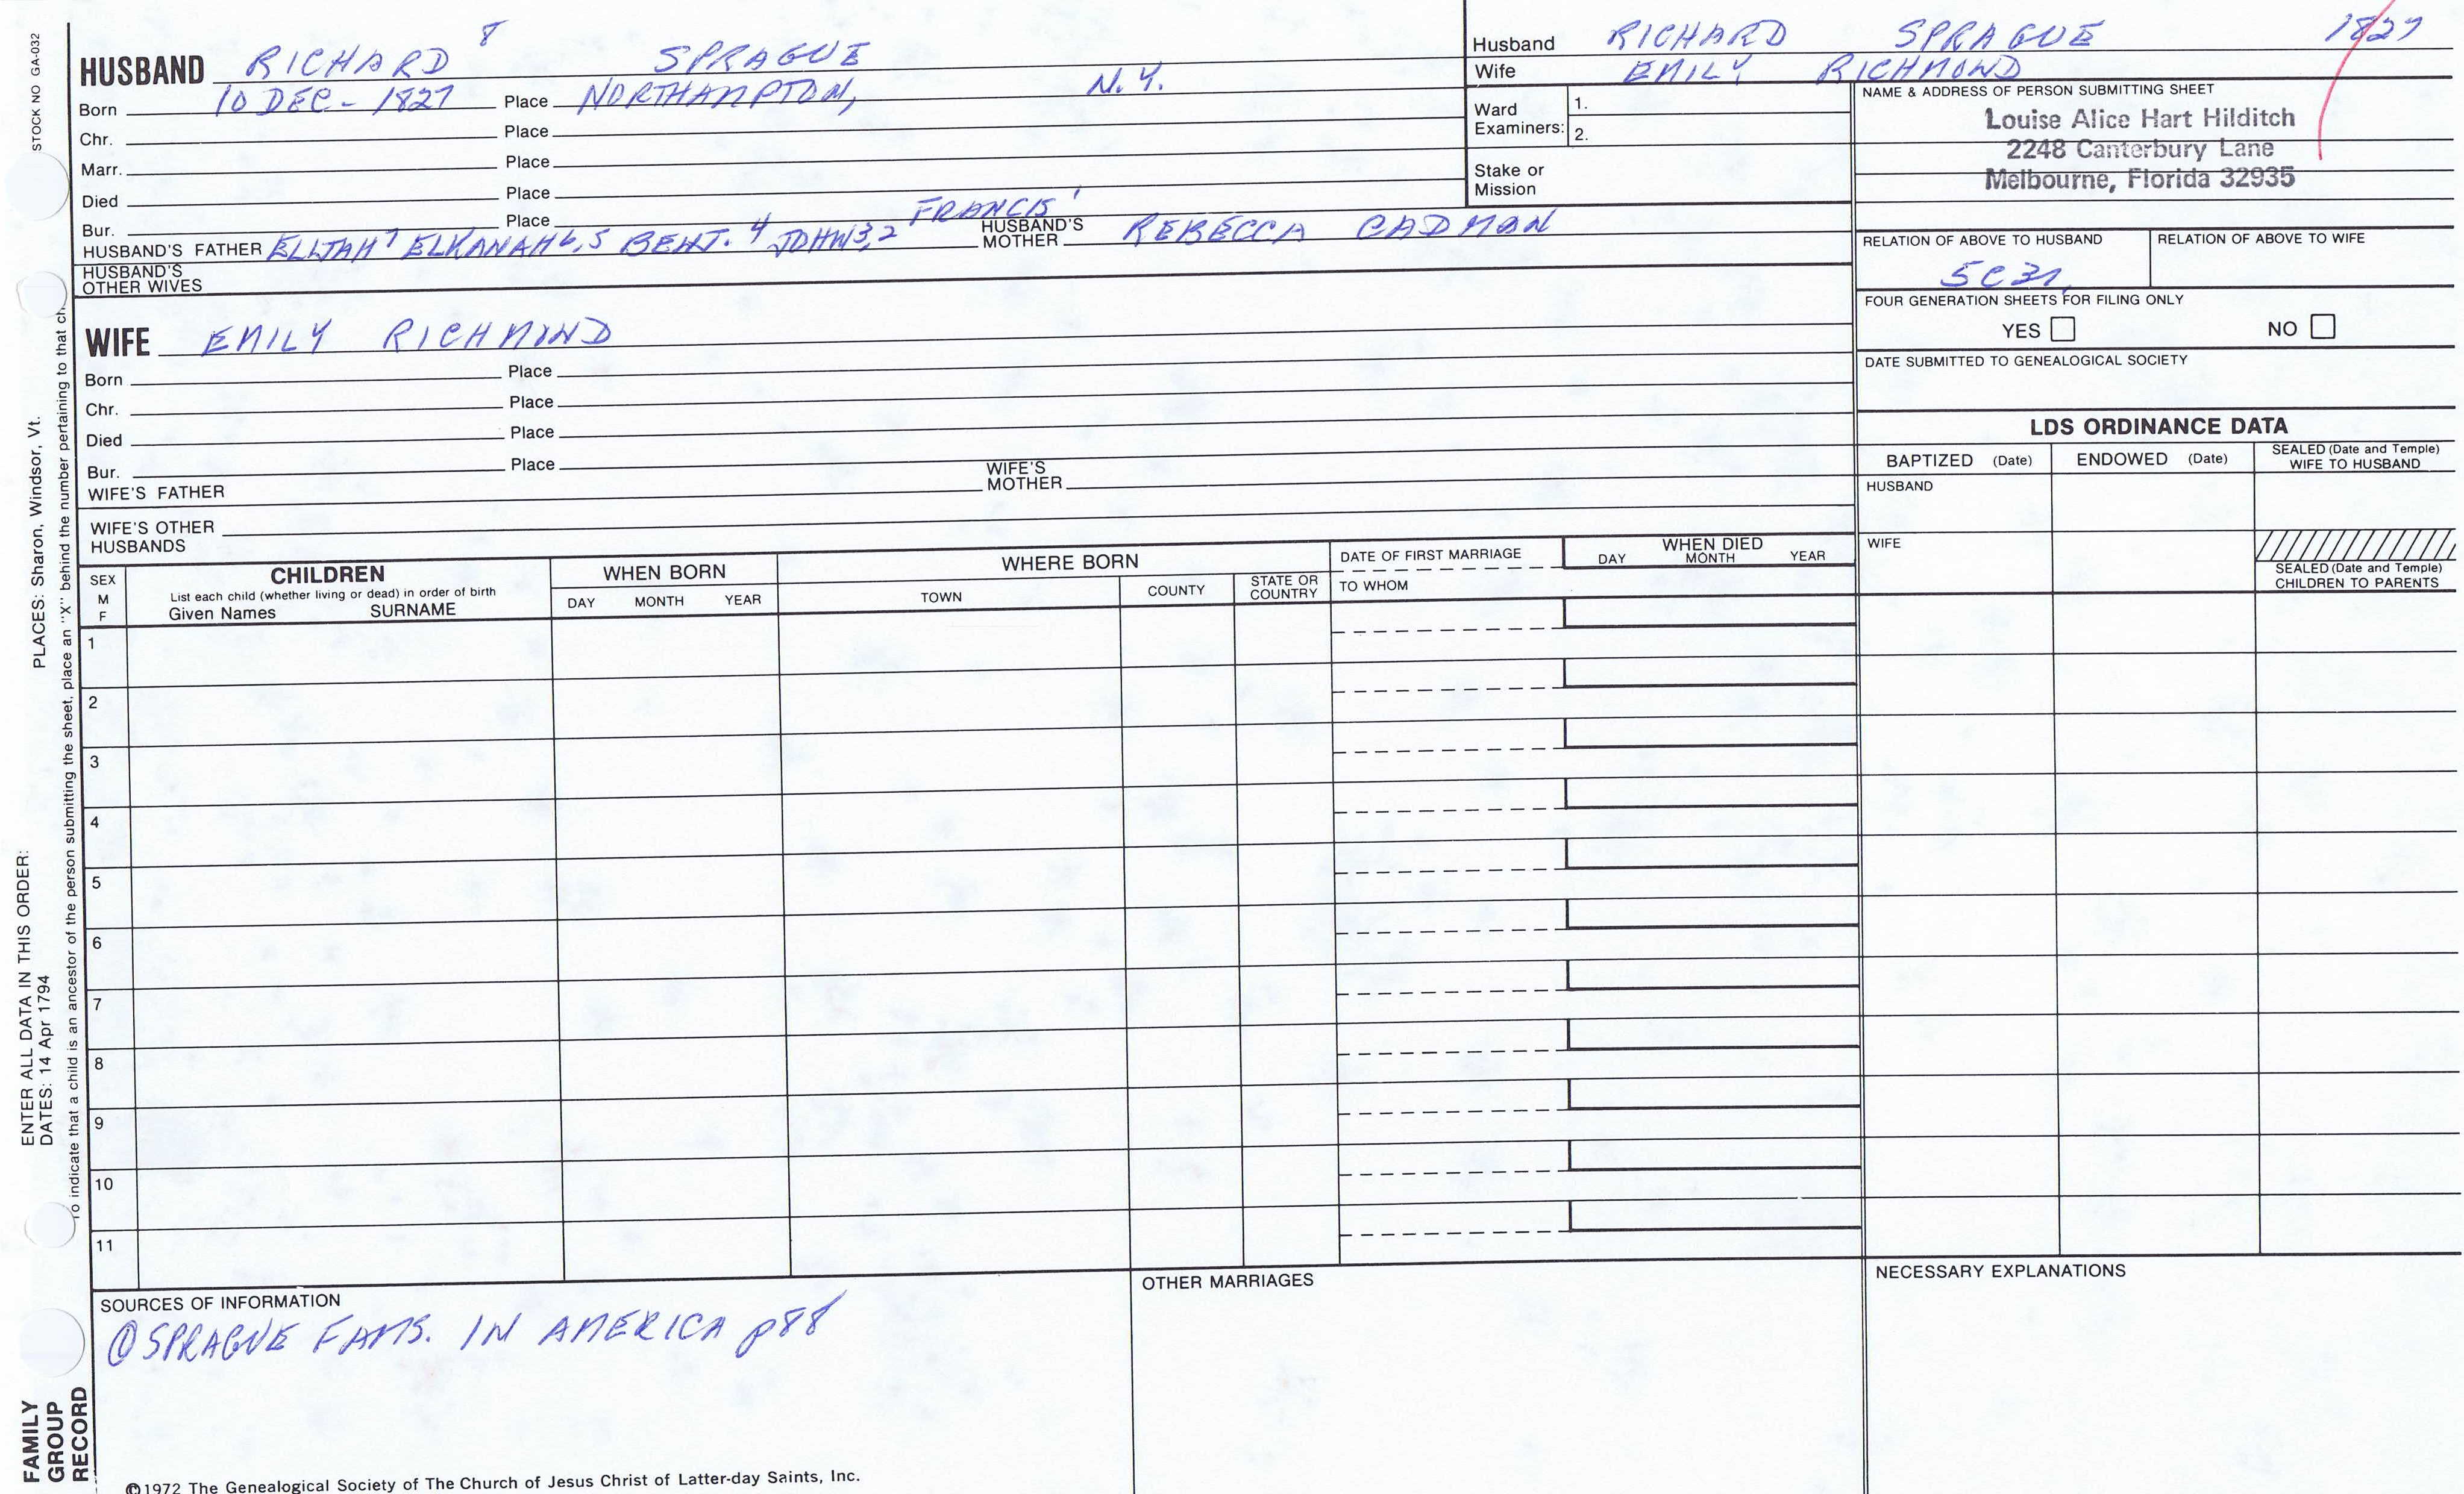 STOCK NO GA-032
HUSBAND RICHARD 8 SPRAGUE
Born 10 DEC - 1827 Place NORTHAMPTON, N.Y.
Chr. Place
Marr. Place
Died Place
Bur. Place
HUSBAND'S FATHER ELIJAH 7 ELKANAH 6,5 BENJ. 4 JOHN 3,2 FRANCIS 1 HUSBAND'S MOTHER REBECCA CADMAN
HUSBAND'S OTHER WIVES
WIFE EMILY RICHMOND
Born Place
Chr. Place
Died Place
Bur. Place
WIFE'S FATHER WIFE'S MOTHER
WIFE'S OTHER HUSBANDS
Husband RICHARD SPRAGUE 1827
Wife EMILY RICHMOND
Ward Examiners: 1.
2.
Stake or Mission
NAME & ADDRESS OF PERSON SUBMITTING SHEET
Louise Alice Hart Hilditch
2248 Canterbury Lane
Melbourne, Florida 32935
RELATION OF ABOVE TO HUSBAND RELATION OF ABOVE TO WIFE
FOUR GENERATION SHEETS FOR FILING ONLY
YES NO
DATE SUBMITTED TO GENEALOGICAL SOCIETY
LDS ORDINANCE DATA
BAPTIZED (Date) ENDOWED (Date) SEALED (Date and Temple) WIFE TO HUSBAND
HUSBAND
WIFE
SEALED (Date and Temple) CHILDREN TO PARENTS
SEX M F
CHILDREN
List each child (whether living or dead) in order of birth
Given Names SURNAME
WHEN BORN
DAY MONTH YEAR
WHERE BORN
TOWN COUNTY STATE OR COUNTRY
DATE OF FIRST MARRIAGE
TO WHOM
WHEN DIED
DAY MONTH YEAR
1
2
3
4
5
6
7
8
9
10
11
SOURCES OF INFORMATION
① SPRAGUE FAMS. IN AMERICA p88
OTHER MARRIAGES
NECESSARY EXPLANATIONS
©1972 The Genealogical Society of The Church of Jesus Christ of Latter-day Saints, Inc.
ENTER ALL DATA IN THIS ORDER:
DATES: 14 Apr 1794 PLACES: Sharon, Windsor, Vt.
To indicate that a child is an ancestor of the person submitting the sheet, place an "X" behind the number pertaining to that ch
FAMILY
GROUP
RECORD